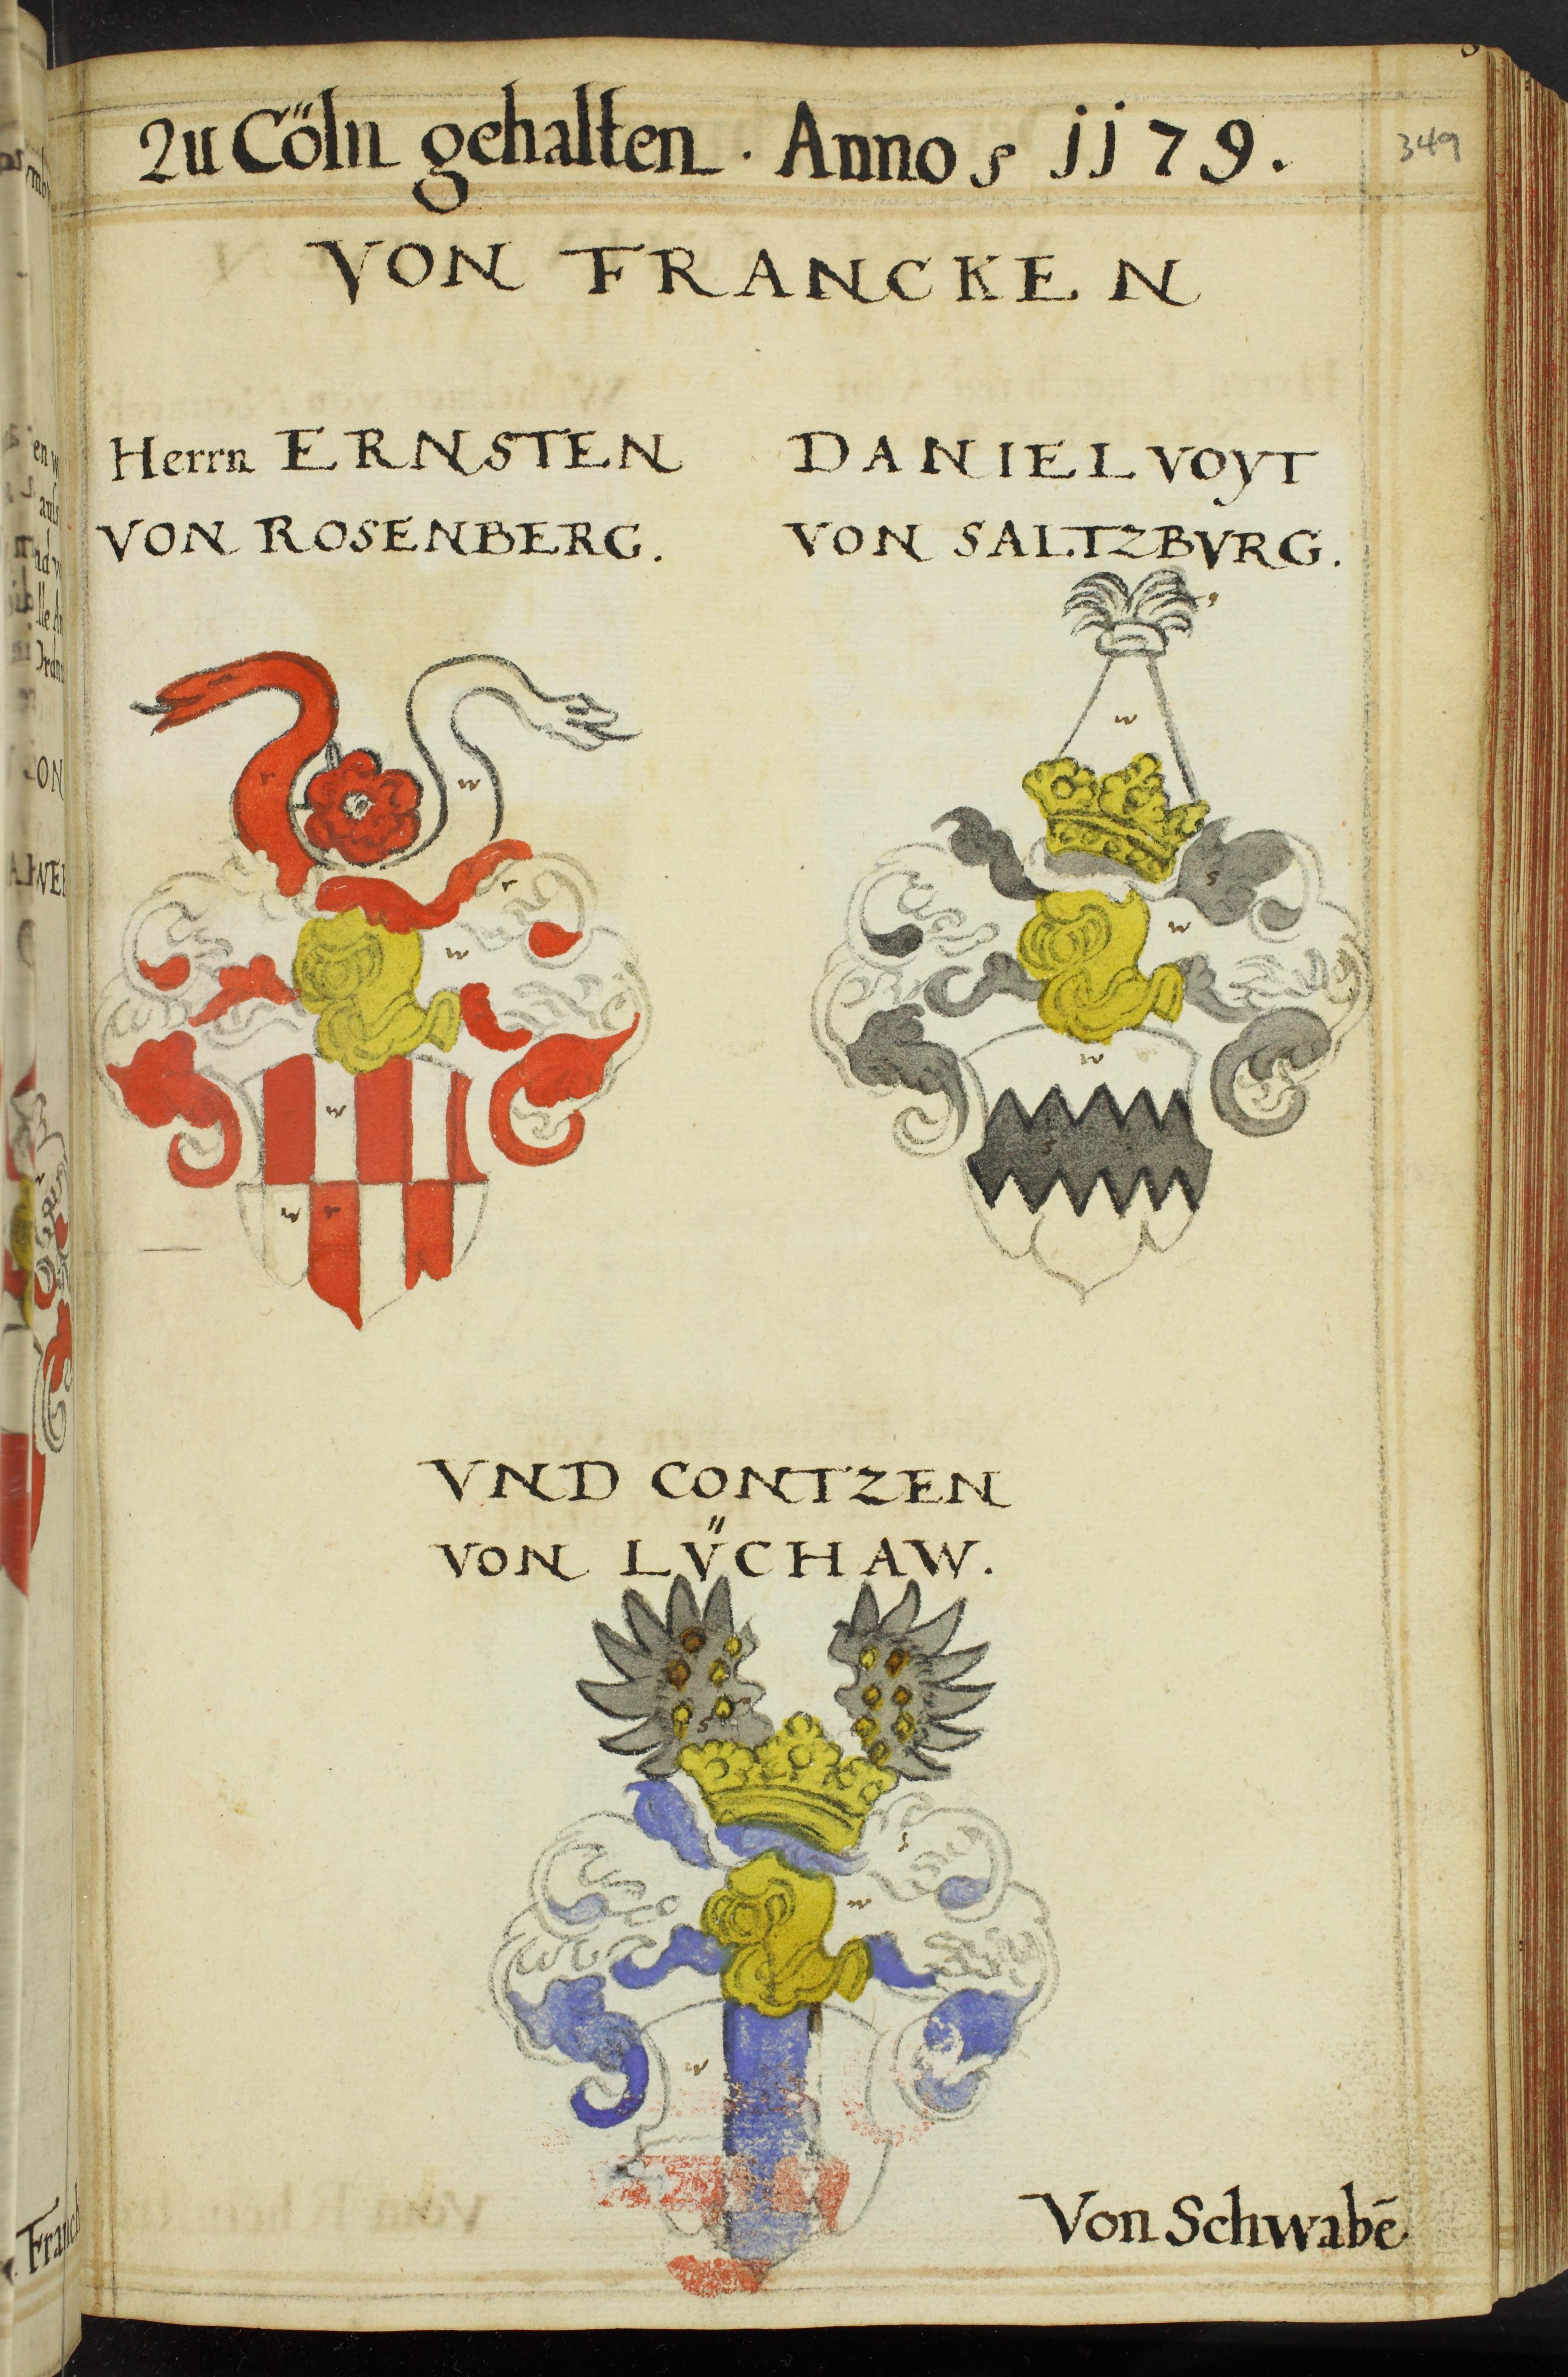 Zu Cöln gehalten. Anno s jj79.
349
VON FRANCKEN
Herrn ERNSTEN
VON ROSENBERG.
DANIEL VOYT
VON SALTZBVRG.
r
w
r
w
w
w
r
w
s
w
w
s
VND CONTZEN
VON LV̈CHAW.
s
s
w
w
Von Schwabē